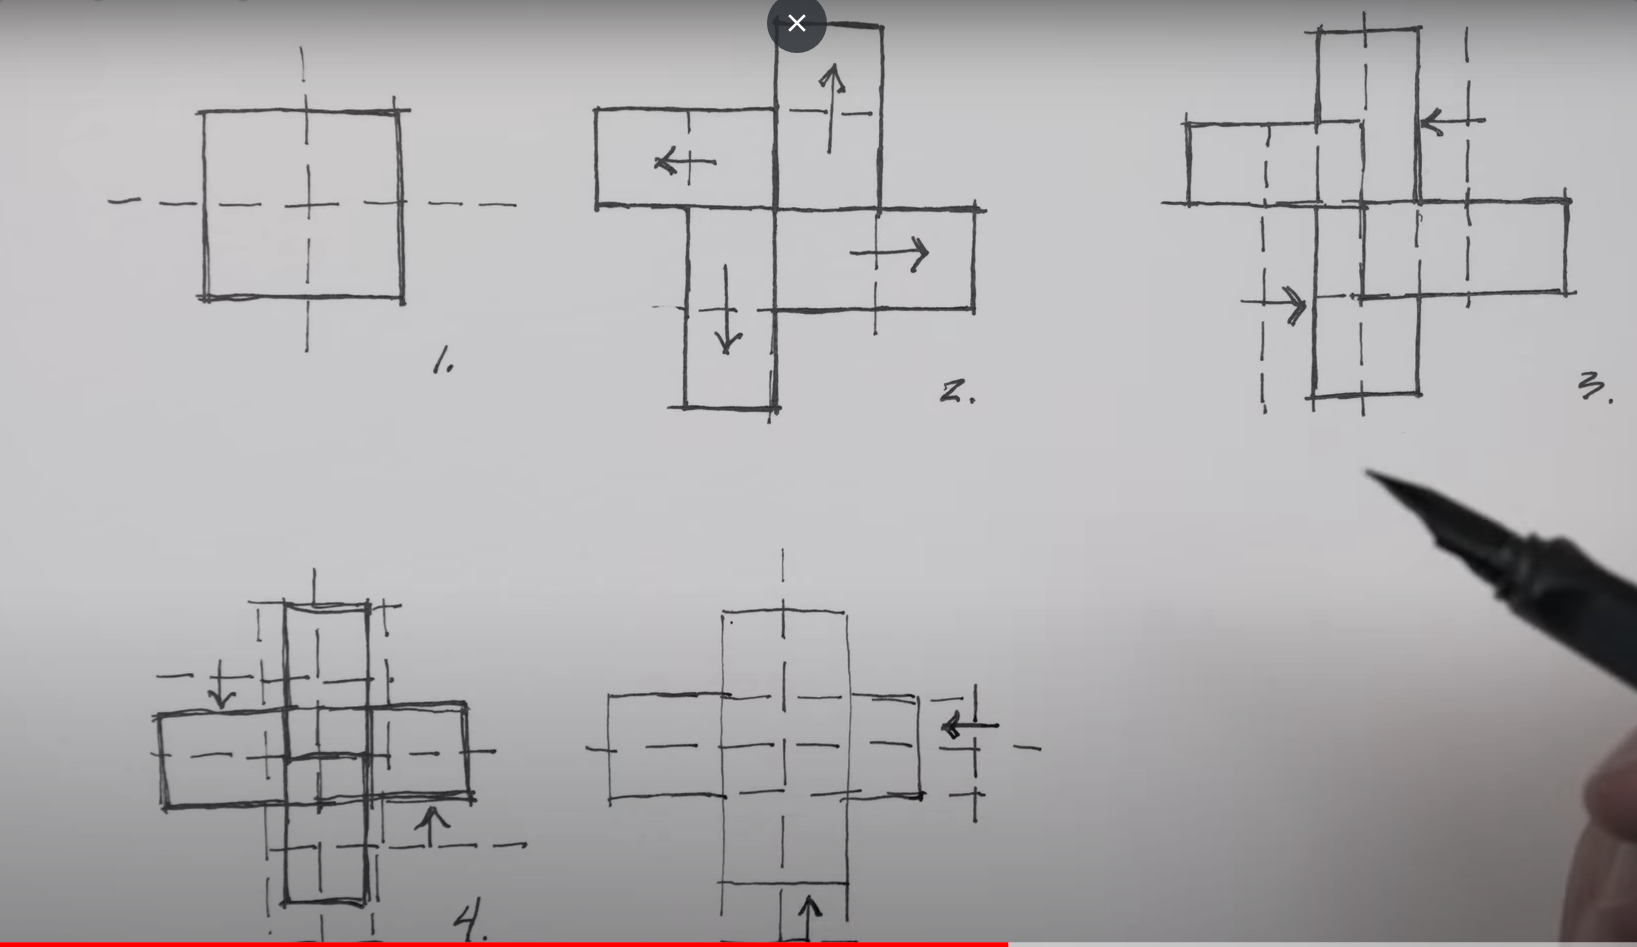 1.
2.
3.
4.